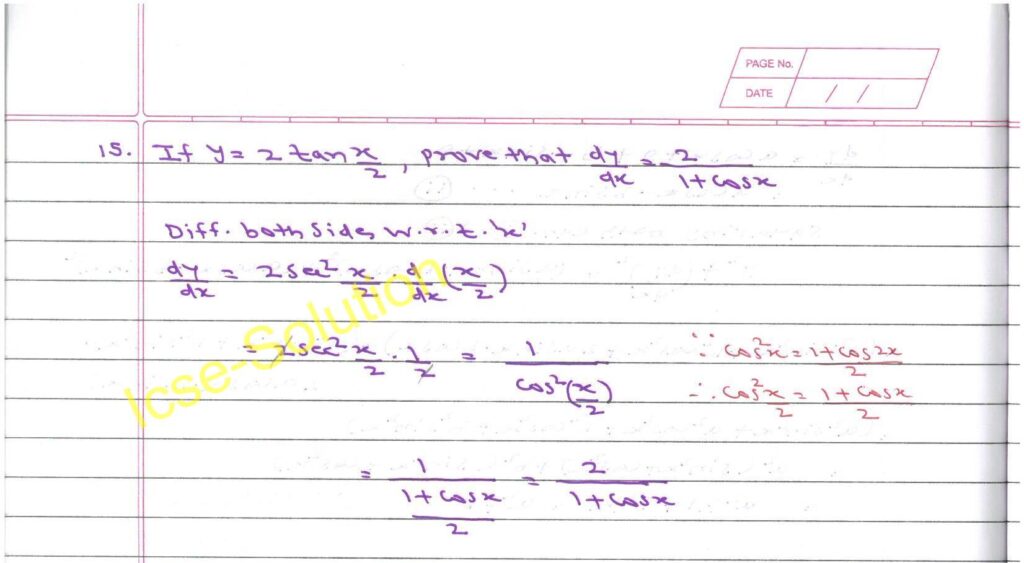 PAGE No.
DATE / /
15. If y = 2 tan x/2, prove that dy/dx = 2/(1+cosx)
Diff. both sides w.r.t. 'x'
dy/dx = 2 sec² x/2 · d/dx (x/2)
= 2 sec² x/2 · 1/2 = 1/cos²(x/2)
∵ cos²x = (1+cos2x)/2
∴ cos² x/2 = (1+cosx)/2
= 1/((1+cosx)/2) = 2/(1+cosx)
Icse-Solution